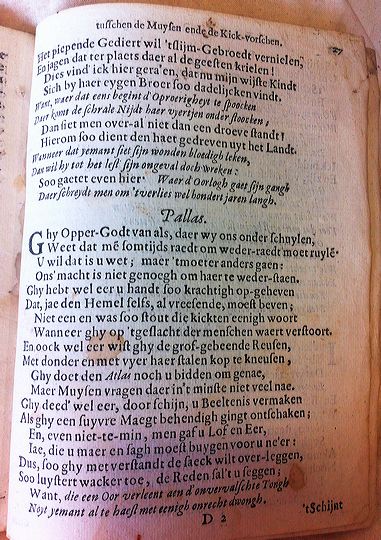 tusschen de Muysen ende de Kick-vorschen. 27
Het piepende Gediert wil 'tslijm-Gebroedt vernielen,
En jagen dat ter plaets daer al de geesten krielen!
Dies vind' ick hier gera'en, dat nu mijn wijste Kindt
Sich by haer eygen Broer soo dadelijcken vindt.
Want, waer dat eens begint d'Oproerigheyt te spoocken
Daer komt de schrale Nijdt haer vyertjen onder stoocken;
Dan siet men over-al niet dan een droeve standt!
Hierom soo dient den haet gedreven uyt het Landt.
Wanneer dat yemant siet sijn wonden bloedigh leken,
Dan wil hy tot het lest sijn ongeval doch wreken:
Soo gaetet even hier. Waer d'Oorlogh gaet sijn gangh
Daer schreydt men om 'tverlies wel hondert jaren langh.
Pallas.
Ghy Opper-Godt van als, daer wy ons onder schuylen,
Weet dat mē somtijds raedt om weder-raedt moet ruylē.
U wil dat is u wet; maer 'tmoeter anders gaen:
Ons' macht is niet genoegh om haer te weder-staen.
Ghy hebt wel eer u handt soo krachtigh op-geheven
Dat, jae den Hemel selfs, al vreesende, moest beven;
Niet een en was soo stout die kickten eenigh woort
Wanneer ghy op 'tgeslacht der menschen waert verstoort.
En oock wel eer wist ghy de grof-gebeende Reusen,
Met donder en met vyer haer stalen kop te kneusen,
Ghy doet den Atlas noch u bidden om genae,
Maer Muysen vragen daer in't minste niet veel nae.
Ghy deed' wel eer, door schijn, u Beeltenis vermaken
Als ghy een suyvre Maegt behendigh gingt ontschaken;
En, even niet-te-min, men gaf u Lof en Eer,
Iae, die u maer en sagh moest buygen voor u ne'er:
Dus, soo ghy met verstandt de saeck wilt over-leggen,
Soo luystert wacker toe, de Reden sal't u seggen;
Want, die een Oor verleent aen d'onvervalschte Tongh
Noyt yemant al te haest met eenigh onrecht dwongh.
D 2 'tSchijnt